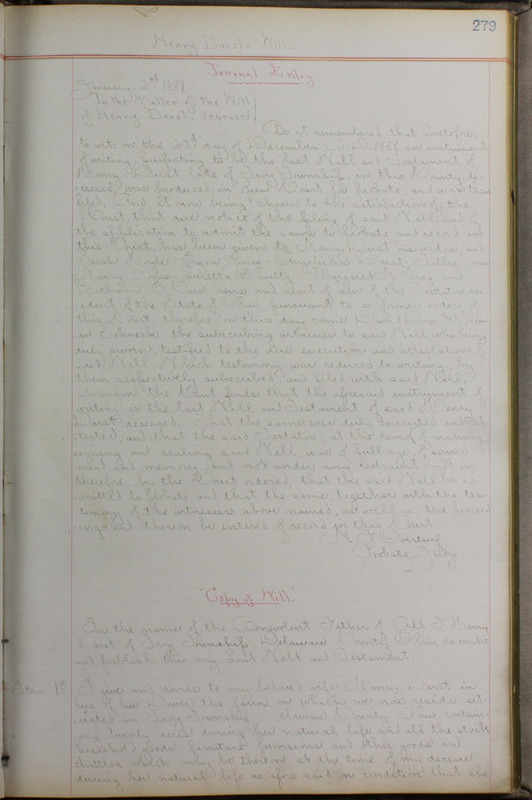 279
Henry Darst's Will.
Journal Entry
January 2nd 1889
In the Matter of the Will
of Henry Darst, deceased
Be it remembered that heretofore,
to wit: on the 27th day of December A.D. 1888, an instrument
of writing, purporting to be the last Will and Testament of
Henry Darst late of Troy Township, in this County, de-
ceased, was produced in open Court for probate, and was then
filed. And, It now being shown to the satisfaction of the
Court, that due notice of the filing of said Will and of
the application to admit the same to probate and record in
this Court, has been given to Nancy Darst widow and
Sarah Jones Angeline Darst,
Margaret and
next of kin of the testator res-
ident of the State of Ohio, pursuant to a former order of
this Court, therefore on this day came David
Schneck the subscribing witnesses to said Will, who being
duly sworn, testified to the due execution and attestation of
said Will, Which testimony was reduced to writing, by
them respectively subscribed and filed with said Will,
whereupon the Court finds that the aforesaid instrument of
writing is the last Will and Testament of said Henry
Darst, deceased. That the same was duly executed and at-
tested and that the said Testator, at the time of making,
signing and sealing said Will, was of full age, of sound
mind and memory, and not under any restraint. It is,
therefore, by the Court ordered, that the said Will be ad-
mitted to probate and that the same, together with the tes-
timony of the witnesses above named, as well as the proceed-
ings had thereon be entered of record in this Court.
Overturf
Probate Judge
"Copy of Will."
In the name of the Benevolent Father of All I Henry
Darst of Troy Township, Delaware County Ohio, do make
and publish this my Last Will and Testament.
Item 1st. I give and devise to my beloved wife Nancy Darst in
lieu of her Dower the farm on which we now reside sit-
uated in Troy Township Delaware County Ohio contain-
ing twenty acres during her natural life and all the stock
household goods furniture provisions and other goods and
chattles which may be thereon at the time of my decease
during her natural life as afore said on condition that she